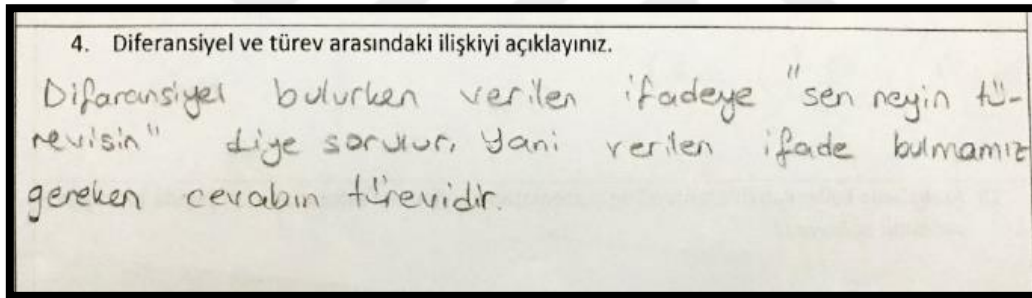 4. Diferansiyel ve türev arasındaki ilişkiyi açıklayınız.
Difaransiyel bulurken verilen ifadeye "sen neyin tü-
revisin" diye sorulur. Yani verilen ifade bulmamız
gereken cevabın türevidir.